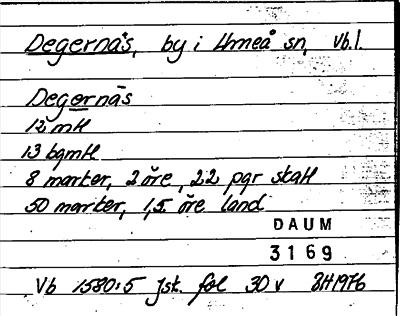 Degernäs, by i Umeå sn, Vb.l.
Degernäs
12 mH
13 bgmH
8 marker, 2 öre, 22 pgr skatt
50 marker, 1,5 öre land
DAUM
3169
Vb 1580:5 Jsk. fol 30 v BH 1976